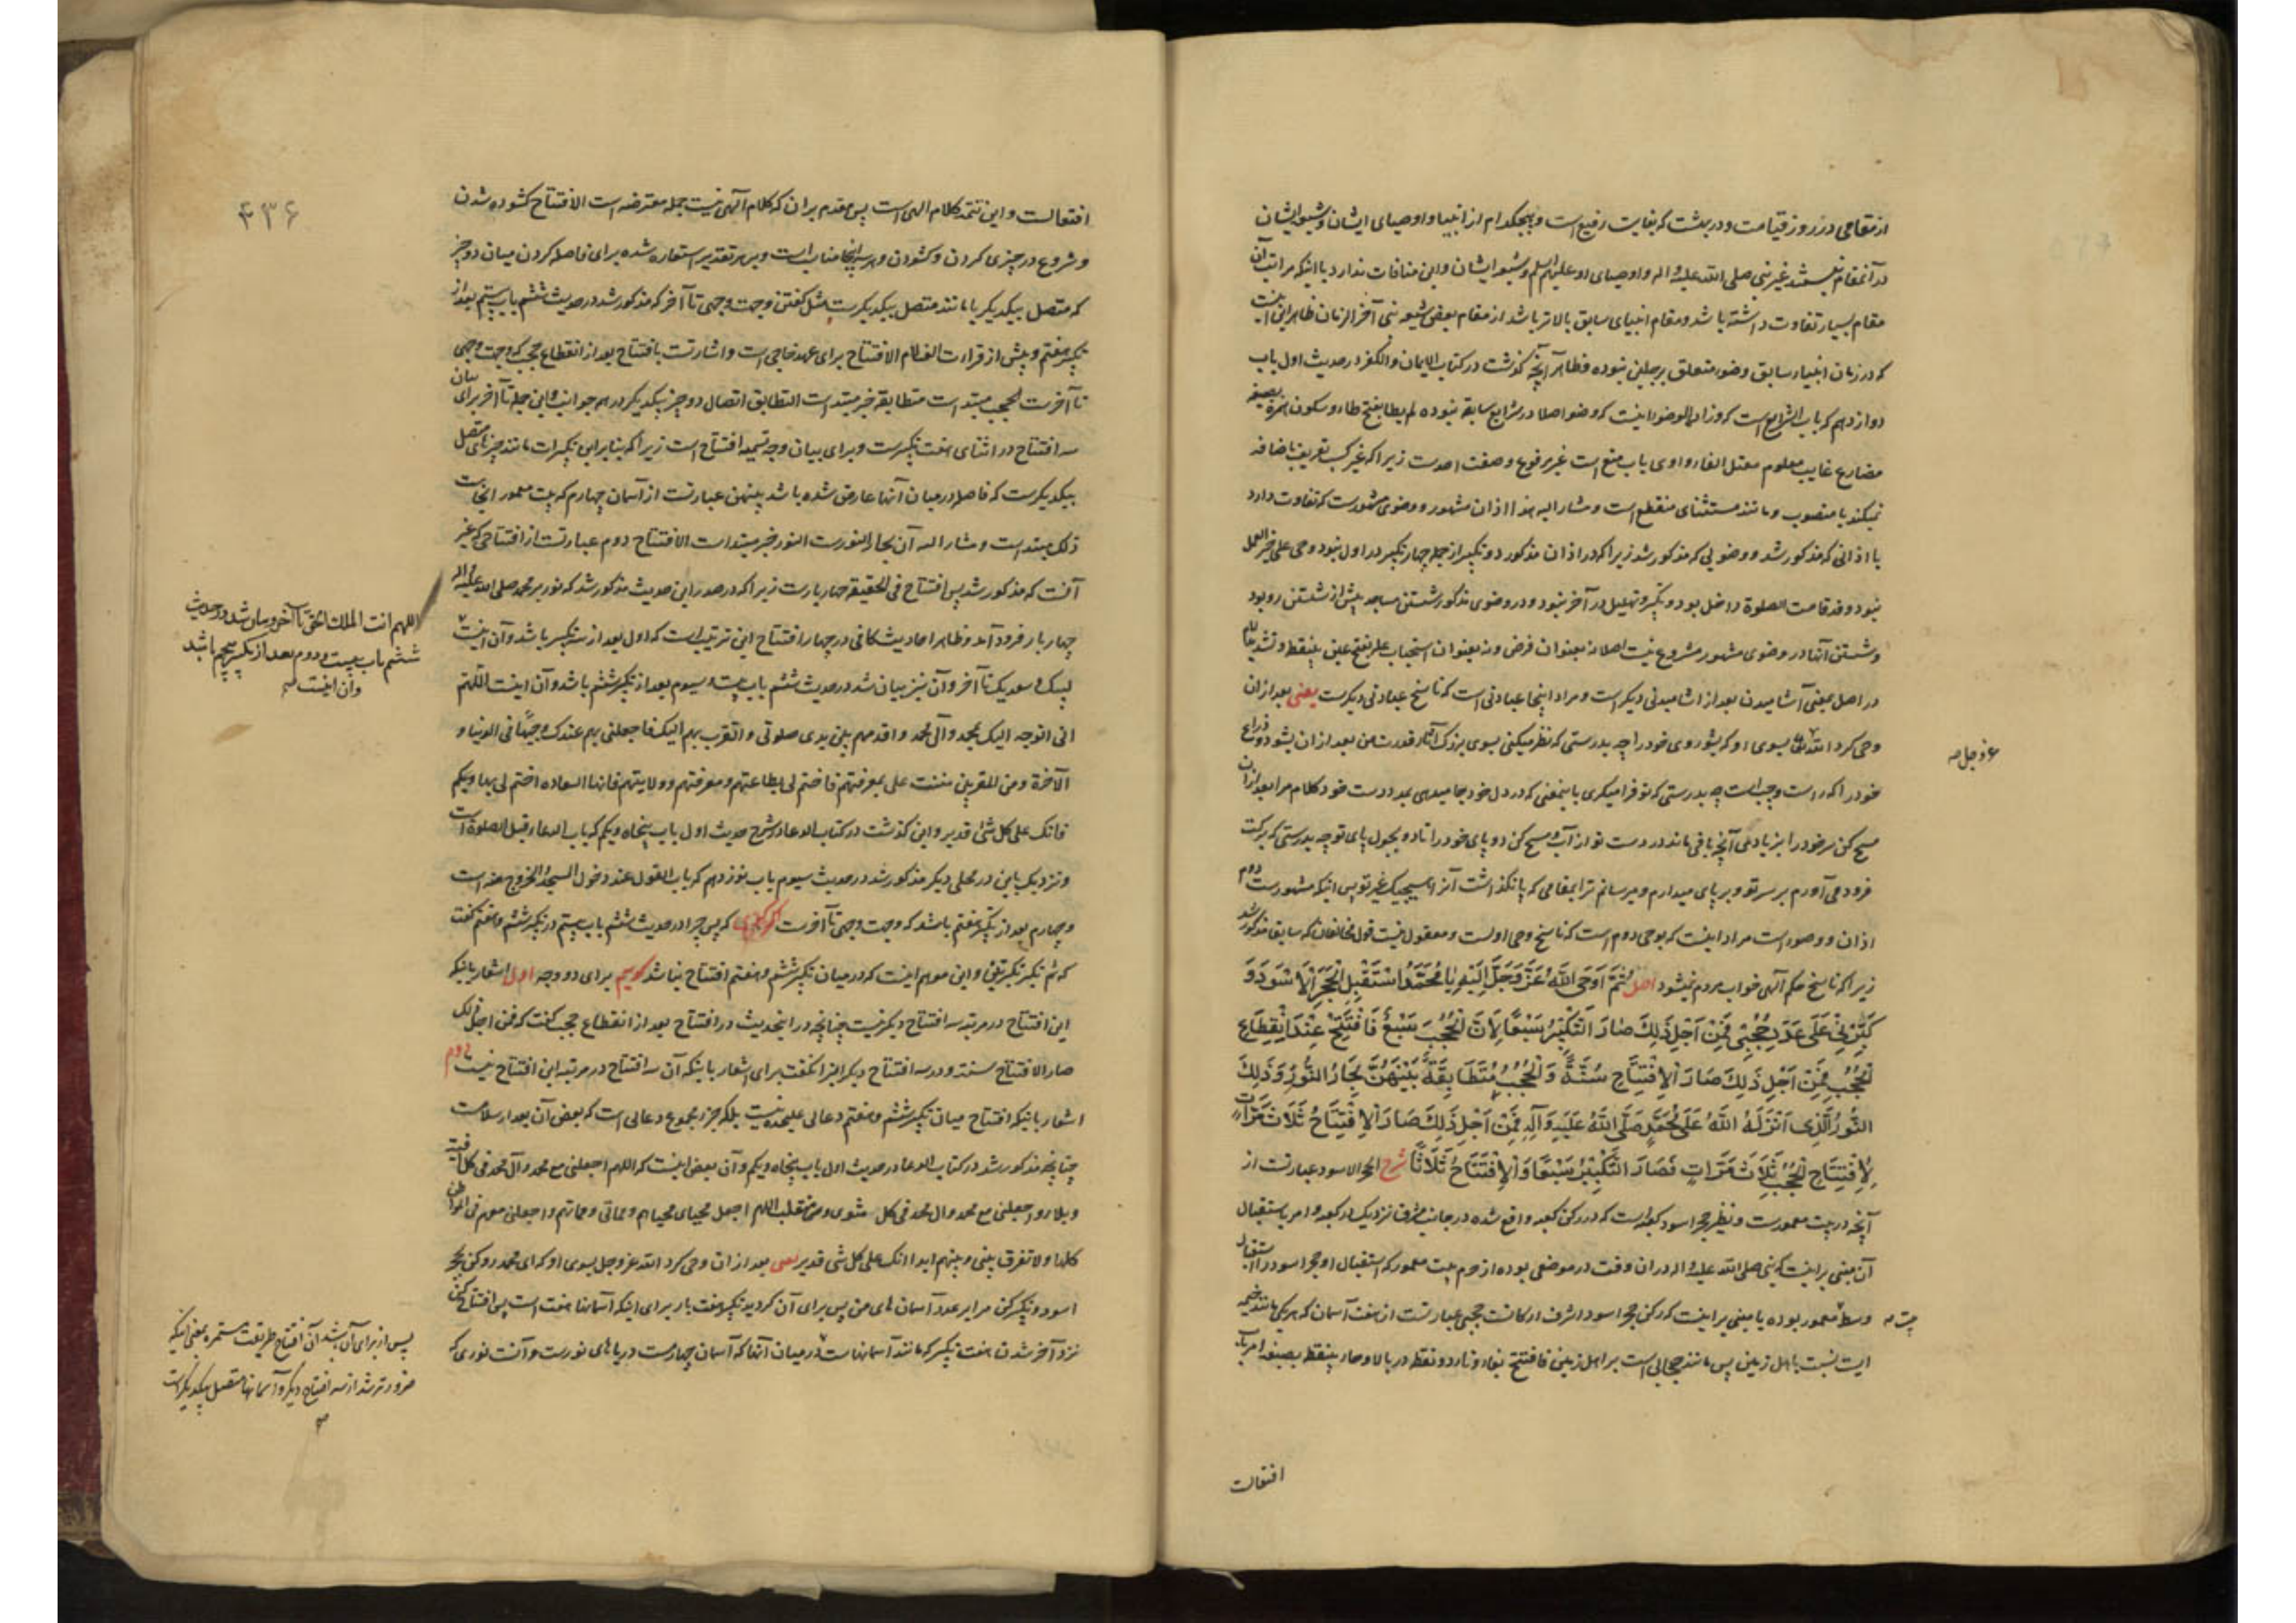 از مقامی در روز قیامت و در بهشت که بغایت رفیع است و هیچکدام از انبیا و اوصیای ایشان و شیعه ایشان
در آنمقام نیستند غیر نبی صلی الله علیه و اله و اوصیای او علیهم السلم و شیعه ایشان و این منافات ندارد با اینکه مراتب آن
مقام بسیار تفاوت داشته باشد و مقام انبیای سابق بالاتر باشد از مقام بعض شیعه نبی آخر الزمان ظاهر این اینست
که در زمان انبیاء سابق وضو متعلق برجلین نبوده و ظاهر آنچه گذشت در کتاب الایمان والکفر در حدیث اول باب
دوازدهم که باب الشرایع است که و زاده الوضوء اینست که وضو اصلا در شرایع سابقه نبوده لم یطأ بفتح طاء و سکون همزه بصیغه
مضارع غایب معلوم معتل الفاء واوی باب منع است غیر مرفوع و صفت احدست زیرا که غیر کسب تعریف باضافه
نمیکند یا منصوب و مانند مستثنای منقطع است و مشار الیه هذا اذان مشهور و وضوی مشهورست که تفاوت دارد
با اذانی که مذکور شد و وضویی که مذکور شد زیرا که در اذان مذکور دو تکبیر از جمله چهار تکبیر در اول نبود و حی علی خیر العمل
نبود و قد قامت الصلوة داخل بود و تکبیر و تهلیل در آخر نبود و در وضوی مذکور شستن مساجد پیش از شستن رو بود
و شستن آنها در وضوی مشهور مشروع نیست اصلا نه بعنوان فرض و نه بعنوان استحباب علل بفتح عین بینقطه و تشدید لام
در اصل بمعنی آشامیدن بعد از اشامیدنی دیگر است و مراد اینجا عبادتی است که ناسخ عبادتی دیگرست یعنی بعد از ان
وحی کرد الله تعالی بسوی او که بشو روی خود را چه بدرستی که نظر میکنی بسوی بزرگ آثار قدرت من بعد از ان بشو دو ذراع
خود را که راست و چپ است چه بدرستی که تو فرا میگری باینمعنی که در دل خود جا میدهی بمدد دست خود کلام مرا بعد از ان
مسح کن سر خود را بزیادتی آنچه باقی ماند در دست تو از آب و مسح کن دو پای خود را تا دو بجول پای تو چه بدرستی که برکت
فرود می آورم بر سر تو و بر پای میدارم و میرسانم ترا بمقامی که پا نگذاشت آنرا هیچیک غیر تو پس اینکه مشهورست دوم
اذان و وضو است مراد اینست که بوحی دوم است که ناسخ وحی اولست و معقول نیست قول مخالفان که سابقا مذکور شد
زیرا که ناسخ حکم آلهی خواب مردم نمیشود اصل ثُمَّ اَوْحَی اللّٰهُ عَزَّ وَجَلَّ اِلَیْهِ یَا مُحَمَّدُ اسْتَقْبِلِ الْحَجَرَ الْاَسْوَدَ وَ
کَبِّرْنِی عَلَی عَدَدِ حُجُبِی فَمِنْ اَجْلِ ذٰلِکَ صَارَ التَّکْبِیْرُ سَبْعًا لِاَنَّ الْحُجُبَ سَبْعٌ فَافْتَتِحْ عِنْدَ انْقِطَاعِ
الْحُجُبِ فَمِنْ اَجْلِ ذٰلِکَ صَارَ الْاِفْتِتَاحُ سُنَّةً وَ الْحُجُبُ مُتَطَابِقَةٌ بَیْنَهُنَّ بِحَارُ النُّورِ وَ ذٰلِکَ
النُّورُ الَّذِی اَنْزَلَهُ اللّٰهُ عَلَی مُحَمَّدٍ صَلَّی اللّٰهُ عَلَیْهِ وَ آلِهِ فَمِنْ اَجْلِ ذٰلِکَ صَارَ الْاِفْتِتَاحُ ثَلَاثَ مَرَّاتٍ
لِاِفْتِتَاحِ الْحُجُبِ ثَلَاثَ مَرَّاتٍ فَصَارَ التَّکْبِیْرُ سَبْعًا وَ الْاِفْتِتَاحُ ثَلَاثًا شرح الحجر الاسود عبارتست از
آنچه در بیت معمورست و نظیر حجر اسود کعبه است که در رکن کعبه واقع شده در جانب مشرق نزدیک در کعبه و امر باستقبال
آن مبنی بر اینست که نبی صلی الله علیه و اله در ان وقت در موضعی بوده از حرم بیت معمور که استقبال او حجر اسود را استقبال
وسط معمور بوده یا مبنی بر اینست که رکن حجر اسود اشرف ارکانست حجبی عبارتست از هفت آسمان که هر یکی مانند خیمه
ایست نسبت باهل زمین پس مانند حجابی است بر اهل زمین فافتتح بفاء و تاء دو نقطه در بالا و حاء بینقطه بصیغه امر باب
افتعالست
عز وجل صه
بیت صه
۴۳۶
افتعالست و این تتمه کلام الهی است پس مقدم بران که کلام آلهی نیست جمله معترضه است الافتتاح گشوده شدن
و شروع در چیزی کردن و گشودن و هر سه اینجا مناسب است و بر هر تقدیر استعاره شده برای فاصله کردن میان دو چیز
که متصل بیکدیگر یا مانند متصل بیکدیگرست مثل گفتن وجهت وجهی تا آخر که مذکور شد در حدیث ششم باب بیستم بعد از
تکبیر هفتم و پیش از قراءت الف لام الافتتاح برای عهد خارجی است و اشارتست بافتتاح بعد از انقطاع حجب که وجهت وجهی
تا آخرست الحجب مبتداست متطابقة خبر مبتداست التطابق اتصال دو چیز بیکدیگر در همه جوانب و این جمله تا آخر برای بیان
سه افتتاح در اثنای هفت تکبیرست و برای بیان وجه تسمیه افتتاح است زیرا که بنابر این تکبیرات مانند چیزهای متصل
بیکدیگرست که فاصله در میان آنها عارض شده باشد بینهن عبارتست از آسمان چهارم که بیت معمور انجاست
ذلک مبتداست و مشار الیه آن بحار النورست النور خبر مبتداست الافتتاح دوم عبارتست از افتتاحی که غیر
آنست که مذکور شد پس افتتاح فی الحقیقه چهار بارست زیرا که در صدر این حدیث مذکور شد که نور بر محمد صلی الله علیه و اله
چهار بار فرود آمد و ظاهر احادیث کافی در چهار افتتاح این ترتیب است که اول بعد از سه تکبیر باشد و آن اینست
لبیک و سعدیک تا آخر و آن نیز بیان شد در حدیث ششم باب بیستم و سیوم بعد از تکبیر ششم باشد و آن اینست اللّهم
انی اتوجه الیک بمحمد و آل محمد و اقدمهم بین یدی صلوتی و اتقرب بهم الیک فاجعلنی بهم عندک وجیها فی الدنیا و
الآخرة و من المقربین مننت علی بمعرفتهم فاختم لی بطاعتهم و معرفتهم و ولایتهم فانها السعاده اختم لی بها و بکم
فانک علی کل شئ قدیر و این گذشت در کتاب الدعا در شرح حدیث اول باب پنجاه و یکم که باب الدعاء قبل الصلوة است
و نزدیک باین در محلی دیگر مذکور شد در حدیث سیوم باب نوزدهم که باب القول عند دخول المسجد و الخروج منه است
و چهارم بعد از تکبیر هفتم باشد که وجهت وجهی تا آخرست اگر گویی که پس چرا در حدیث ششم باب بیستم در تکبیر ششم و هفتم گفت
که ثم تکبر تکبیرتین و این موهم اینست که در میان تکبیر ششم و هفتم افتتاح نباشد گوییم برای دو وجه اول اشعار باینکه
این افتتاح در مرتبه سه افتتاح دیگر نیست چنانچه در اینحدیث در افتتاح بعد از انقطاع حجب گفت که فمن اجل ذلک
صار الافتتاح سنة و در سه افتتاح دیگر انرا نگفت برای اشعار باینکه آن سه افتتاح در مرتبه این افتتاح نیست دوم
اشعار باینکه افتتاح میان تکبیر ششم و هفتم دعائی علیحده نیست بلکه جزء مجموع دعائی است که بعض آن بعد از سلامست
چنانچه مذکور شد در کتاب الدعا در حدیث اول باب پنجاه و یکم و آن بعض اینست که اللهم اجعلنی مع محمد و آل محمد فی کل عافیة
و بلاء و اجعلنی مع محمد و ال محمد فی کل مثوی و منقلب اللهم اجعل محیای محیاهم و مماتی مماتهم و اجعلنی معهم فی المواطن
کلها و لا تفرق بینی و بینهم ابدا انک علی کل شی قدیر یعنی بعد از ان وحی کرد الله عز وجل بسوی او که ای محمد رو کن بحجر
اسود و تکبیر کن مرا بر عدد آسمان های من پس برای آن گردید تکبیر هفت بار برای اینکه آسمانها هفت است پس افتتاح کن
نزد آخر شدن هفت تکبیر که مانند آسمانهاست در میان آنها که آسمان چهارمست دریاهای نورست و آنست نوری که
اللهم انت الملک الحق تا آخر و بیان شد در حدیث
ششم باب بیستم و دوم بعد از تکبیر پنجم باشد
و آن اینست صه
پس از برای آن شد آن افتتاح طریقت مستمره بمعنی اینکه
ضرورتر شد از سه افتتاح دیگر و آسمانها متصل بیکدیگرست
صه